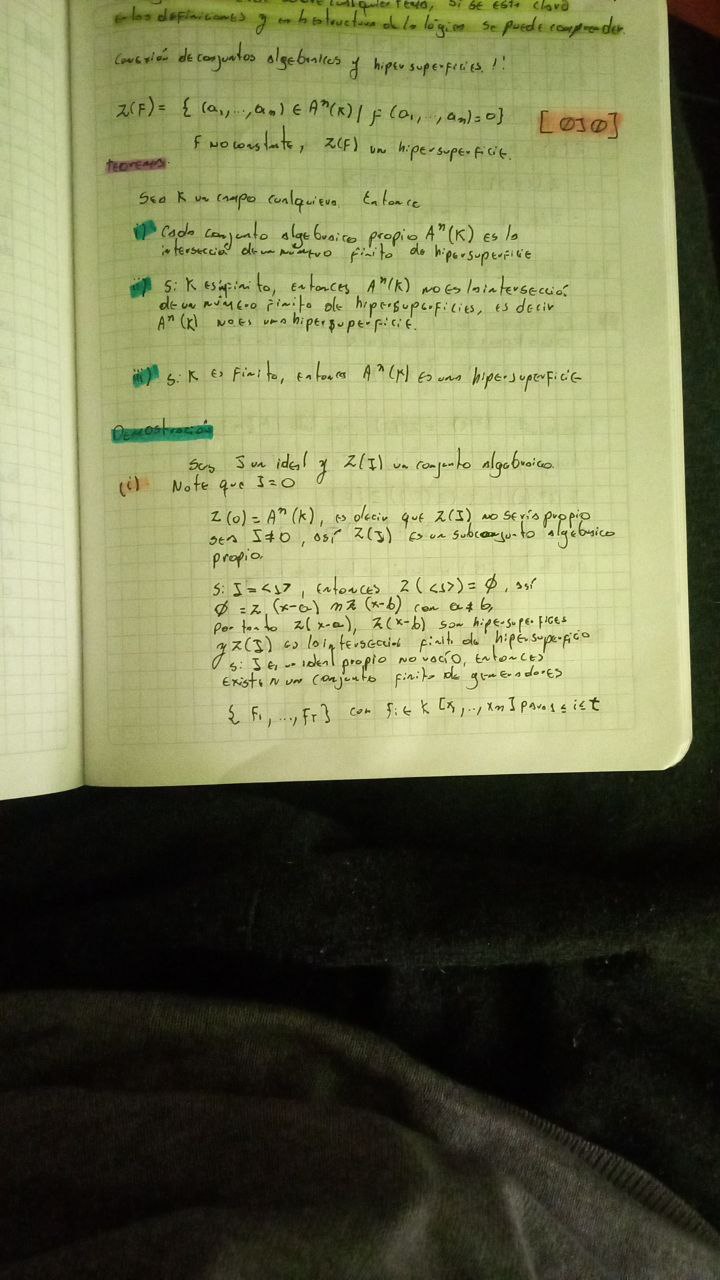 sobre cualquier tema, si se esta claro
en las definiciones y en la estructura de la lógica se puede comprender.
Conexión de conjuntos algebraicos y hipersuperficies !!
Z(F) = { (a1,...,an) ∈ A^n(K) | F (a1,...,an)=0}
[OJO]
F no constante, Z(F) un hipersuperficie.
TEOREMA
Sea K un campo cualquiera. Entonce
i) Cada conjunto algebraico propio A^n(K) es la
intersecció de un número finito de hipersuperficie
ii) Si K es infinito, entonces A^n(K) no es la intersecció
de un número finito de hipersuperficies, es decir
A^n(K) no es una hipersuperficie.
iii) Si K es finito, entonces A^n(K) es una hipersuperficie
Demostración
Sea I un ideal y Z(I) un conjunto algebraico.
(i) Note que I=0
Z(0) = A^n(K), es decir que Z(I) no sería propio
sea I≠0, así Z(I) es un subconjunto algebraico
propio.
Si I=<1>, entonces Z(<1>)=∅, así
∅ = Z(x-a) ∩ Z(x-b) con a≠b,
por tanto Z(x-a), Z(x-b) son hipersuperfices
y Z(I) es la intersección finita de hipersuperficie
Si I es un ideal propio no vacío, entonces
existen un conjunto finito de generadores
{ F1,...,Fr} con fi ∈ K [x1,..,xn] para 1≤i≤t